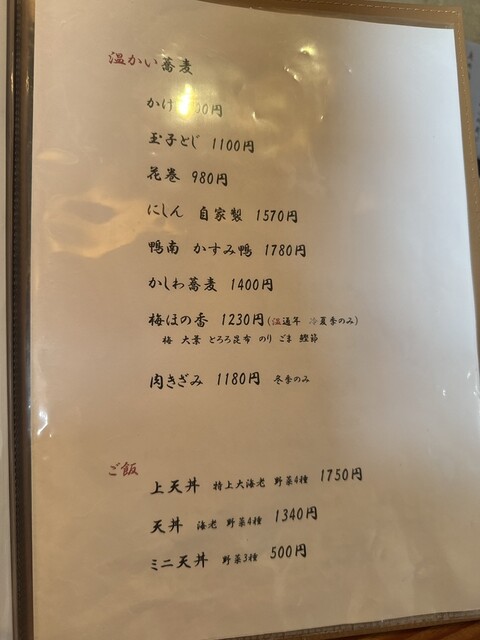 温かい蕎麦
かけ 00円
玉子とじ 1100円
花巻 980円
にしん 自家製 1570円
鴨南 かすみ鴨 1780円
かしわ蕎麦 1400円
梅ほの香 1230円(温通年 冷夏季のみ)
梅 大葉 とろろ昆布 のり ごま 鰹節
肉きざみ 1180円 冬季のみ
ご飯
上天丼 特上大海老 野菜4種 1750円
天丼 海老 野菜4種 1340円
ミニ天丼 野菜3種 500円